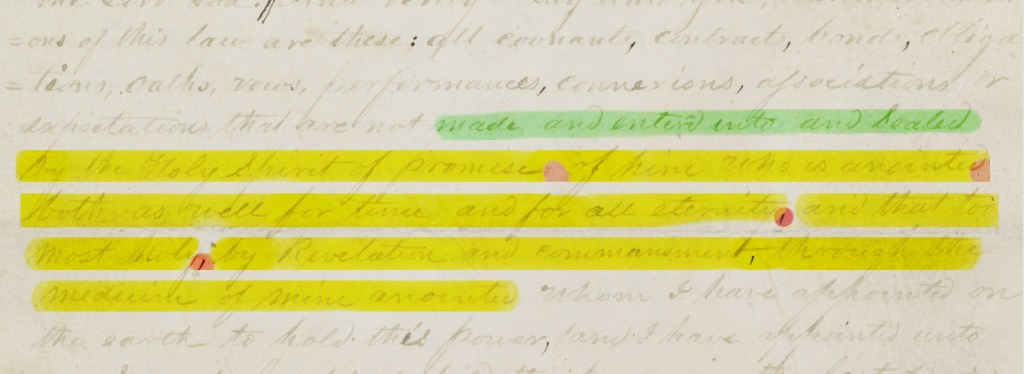 =ons of this law are these: all covenants, contracts, bonds, obliga
=tions, oaths, vows, performances, connexions, associations or
expectations, that are not made and enterd into and Sealed
by the Holy Spirit of promise of him who is anointed
both as well for time and for all eternity, and that too
most holy, by Revelation and commandment, through the
medium of mine anointed whom I have appointed on
the earth to hold this power, and I have appointed unto